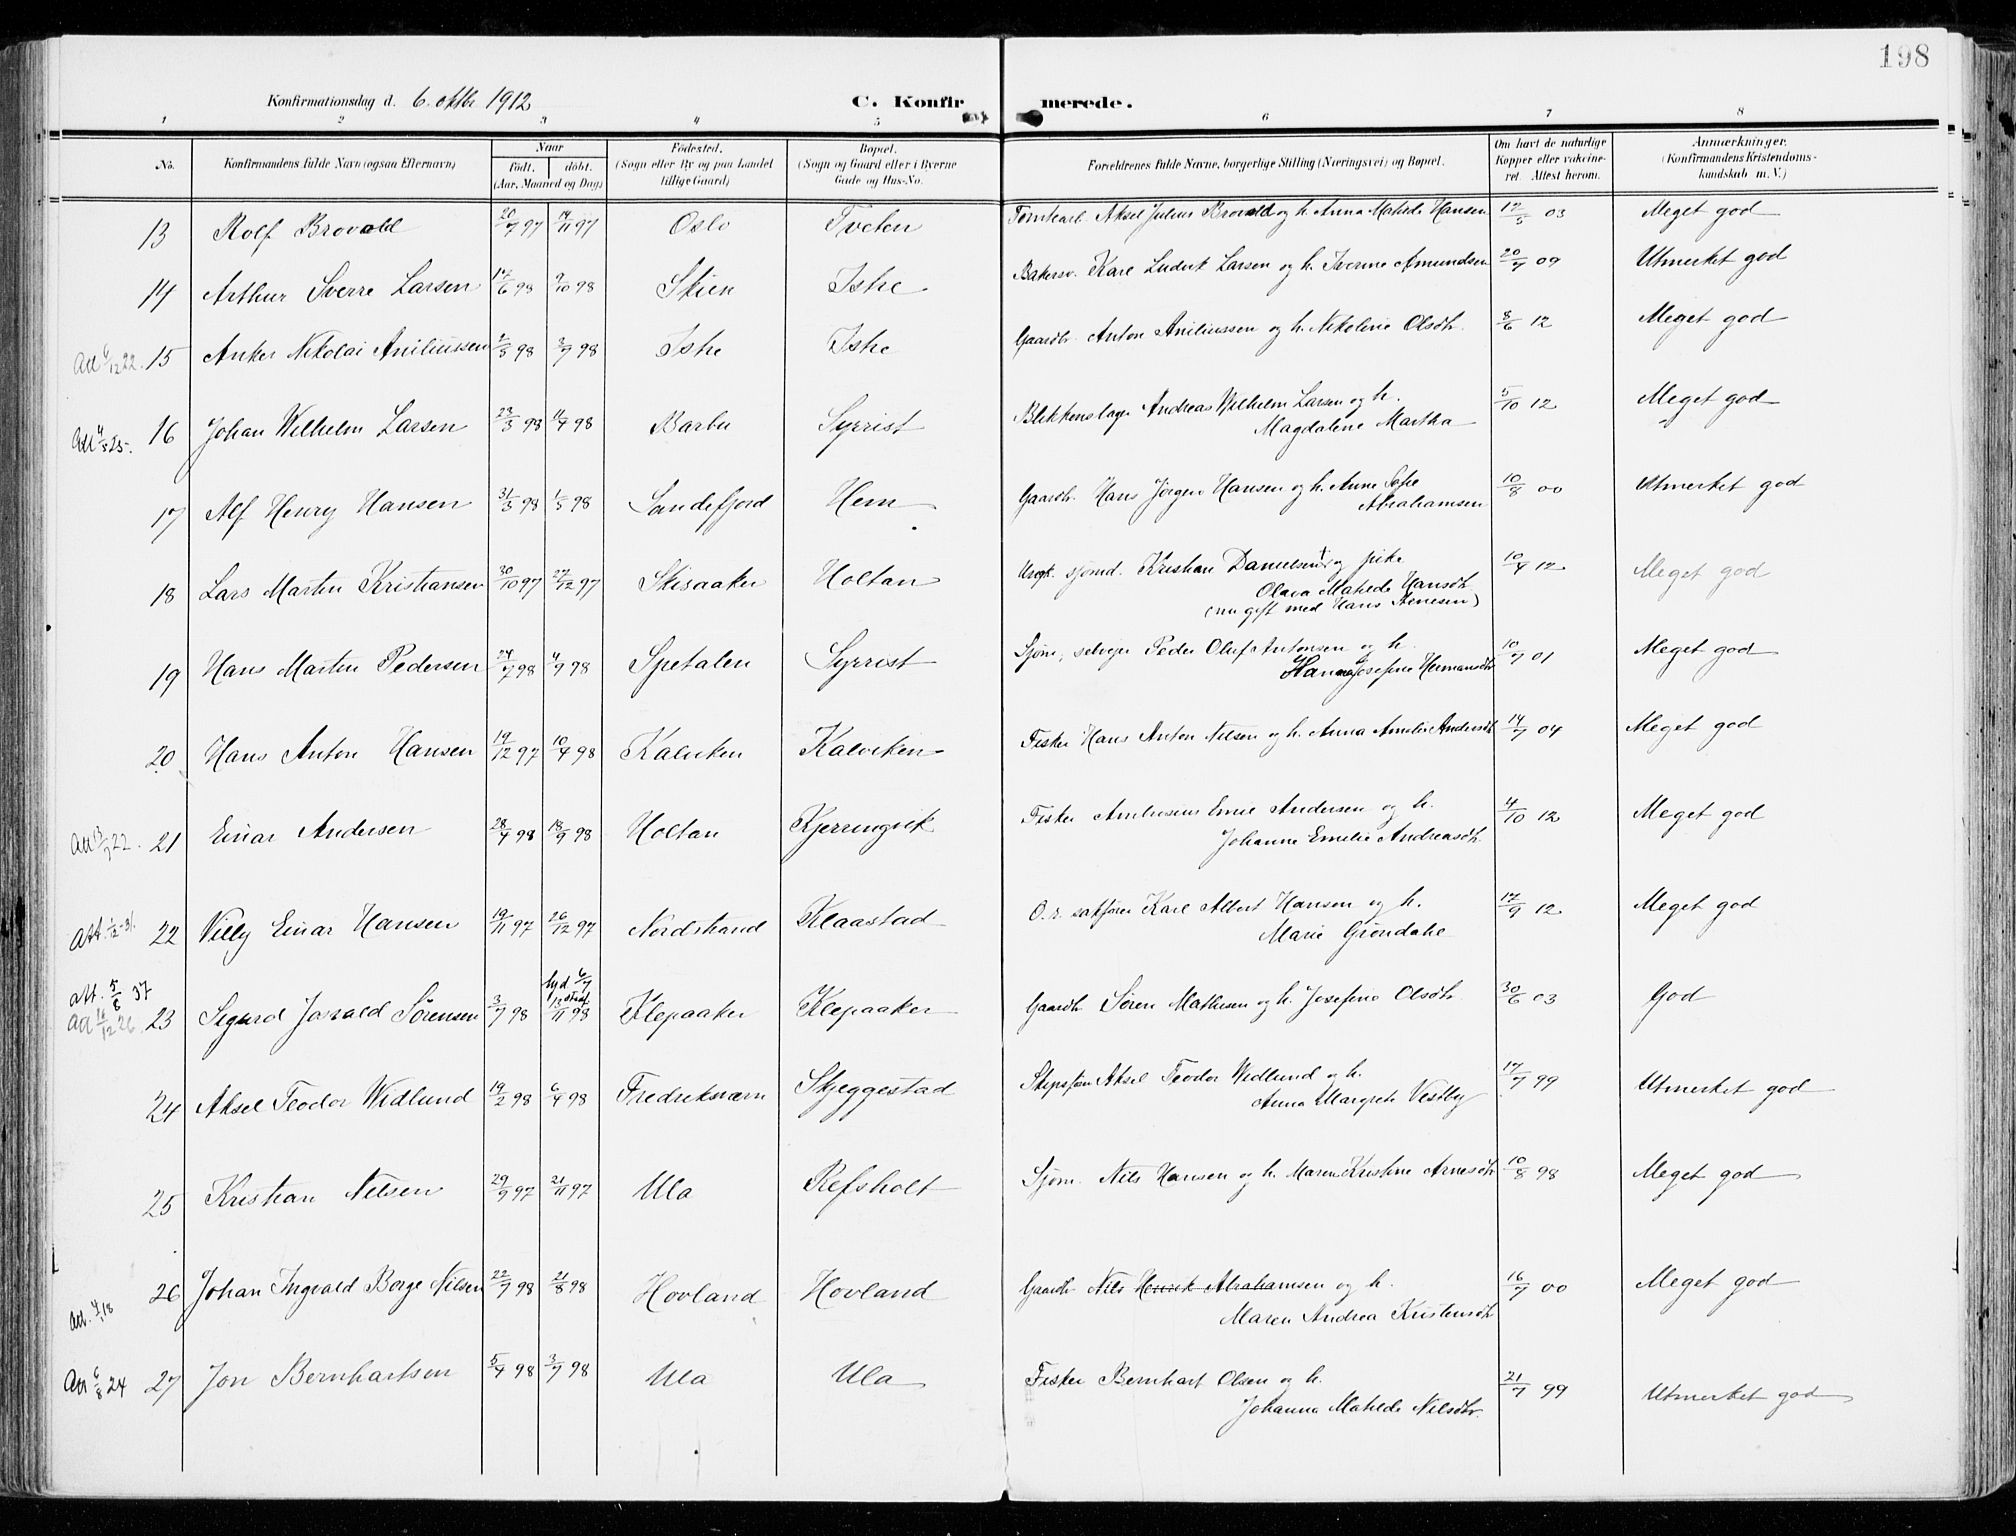 198
Konfirmationsdag d. 6. oktbr 1912 C. Konfirmerede.
1 2 3 4 5 6 7 8
No. Konfirmandens fulde Navn (ogsaa Efternavn) Naar født. døbt. (Aar, Maaned og Dag) Fødested. (Sogn eller By og paa Landet tillige Gaard) Bopæl. (Sogn og Gaard eller i Byerne Gade og Hus-No. Forældrenes fulde Navne, borgerlige Stilling (Næringsvei) og Bopæl. Om havt de naturlige Kopper eller vakcineret. Attest herom. Anmærkninger. (Konfirmandens Kristendomskundskab m. V.)
13 Rolf Brovold 20/7 97 14/11 97 Oslo Tveten Aksel Julius Brovold og h. Anna Matilde Hansen 12/5 03 Meget god
14 Arthur Sverre Larsen 17/6 98 9/10 98 Skien Istre Bakersv. Karl Ludvik Larsen og h. Iverine Amundsen 20/7 09 Utmerket god
Att 6/12 22. 15 Anker Nikolai Aniliussen 2/5 98 3/7 98 Istre Istre Gaardbr. Anton Aniliussen og h. Nikoline Olsdtr. 8/6 12 Meget god
Att 4/5 25. 16 Johan Wilhelm Larsen 23/3 98 11/4 98 Barbu Syrrist Blikkenslager Andreas Wilhelm Larsen og h. 5/10 12 Meget god
Magdalene Martha
17 Alf Henry Hansen 31/3 98 1/5 98 Sandefjord Hem Gaardbr. Hans Jørgen Hansen og h. Anne Sofie 10/8 00 Utmerket god
Abrahamsen
18 Lars Martin Kristiansen 30/10 97 27/12 97 Skisaaker Holtan Ungk. sjømd. Kristian Danielsen † og pike 10/9 12 Meget god
Olava Matilde Hansdtr.
(nu gift med Hans Arnesen)
19 Hans Martin Pedersen 24/7 98 4/9 98 Spetalen Syrrist Sjøm., selveier Peder Oluf Antonsen og h. 10/7 01 Meget god
Hanna Josefine Hermansdtr
20 Hans Anton Hansen 19/12 97 10/4 98 Kalviken Kalviken Fisker Hans Anton Nilsen og h. Anna Amalie Andersdtr 14/7 04 Meget god
Att 13/7 22. 21 Einar Andersen 28/4 98 18/9 98 Holtan Kjerringvik Fisker Ambrosius Emil Andersen og h. 4/10 12 Meget god
Johanne Emelie Andreasdtr.
Att. 1/12-31. 22 Villy Einar Hansen 19/11 97 26/12 97 Nordstrand Klaastad O.r. sakfører Karl Albert Hansen og h. 17/9 12 Meget god
Marie Grøndahl
att. 5/8 37 hjd 6/7
Att 16/12 26. 23 Sigurd Jarvald Sørensen 3/7 98 13/11 98 Klepaaker Klepaaker Gaardbr Søren Mathisen og h. Josefine Olsdtr. 30/6 03 God
24 Aksel Teodor Widlund 19/2 98 6/4 98 Fredriksværn Skjeggestad Skipsfører Aksel Teodor Widlund og h. 17/7 99 Utmerket god
Anna Margrete Vestby
25 Kristian Nilsen 29/9 97 21/11 97 Ula Refsholt Sjøm. Nils Hansen og h. Maren Kristine Arnesdtr 10/8 98 Meget god
26 Johan Ingvald Borge Nilsen 22/7 98 21/8 98 Hovland Hovland Gaardbr Nils Henrik Abrahamsen og h. 16/7 00 Meget god
Maren Andrea Kristensdtr
Att 6/8 24 27 Jon Bernhartsen 5/4 98 3/7 98 Ula Ula Fisker Bernhart Olsen og h. 21/7 99 Utmerket god
Johanna Matilde Nilsdtr.